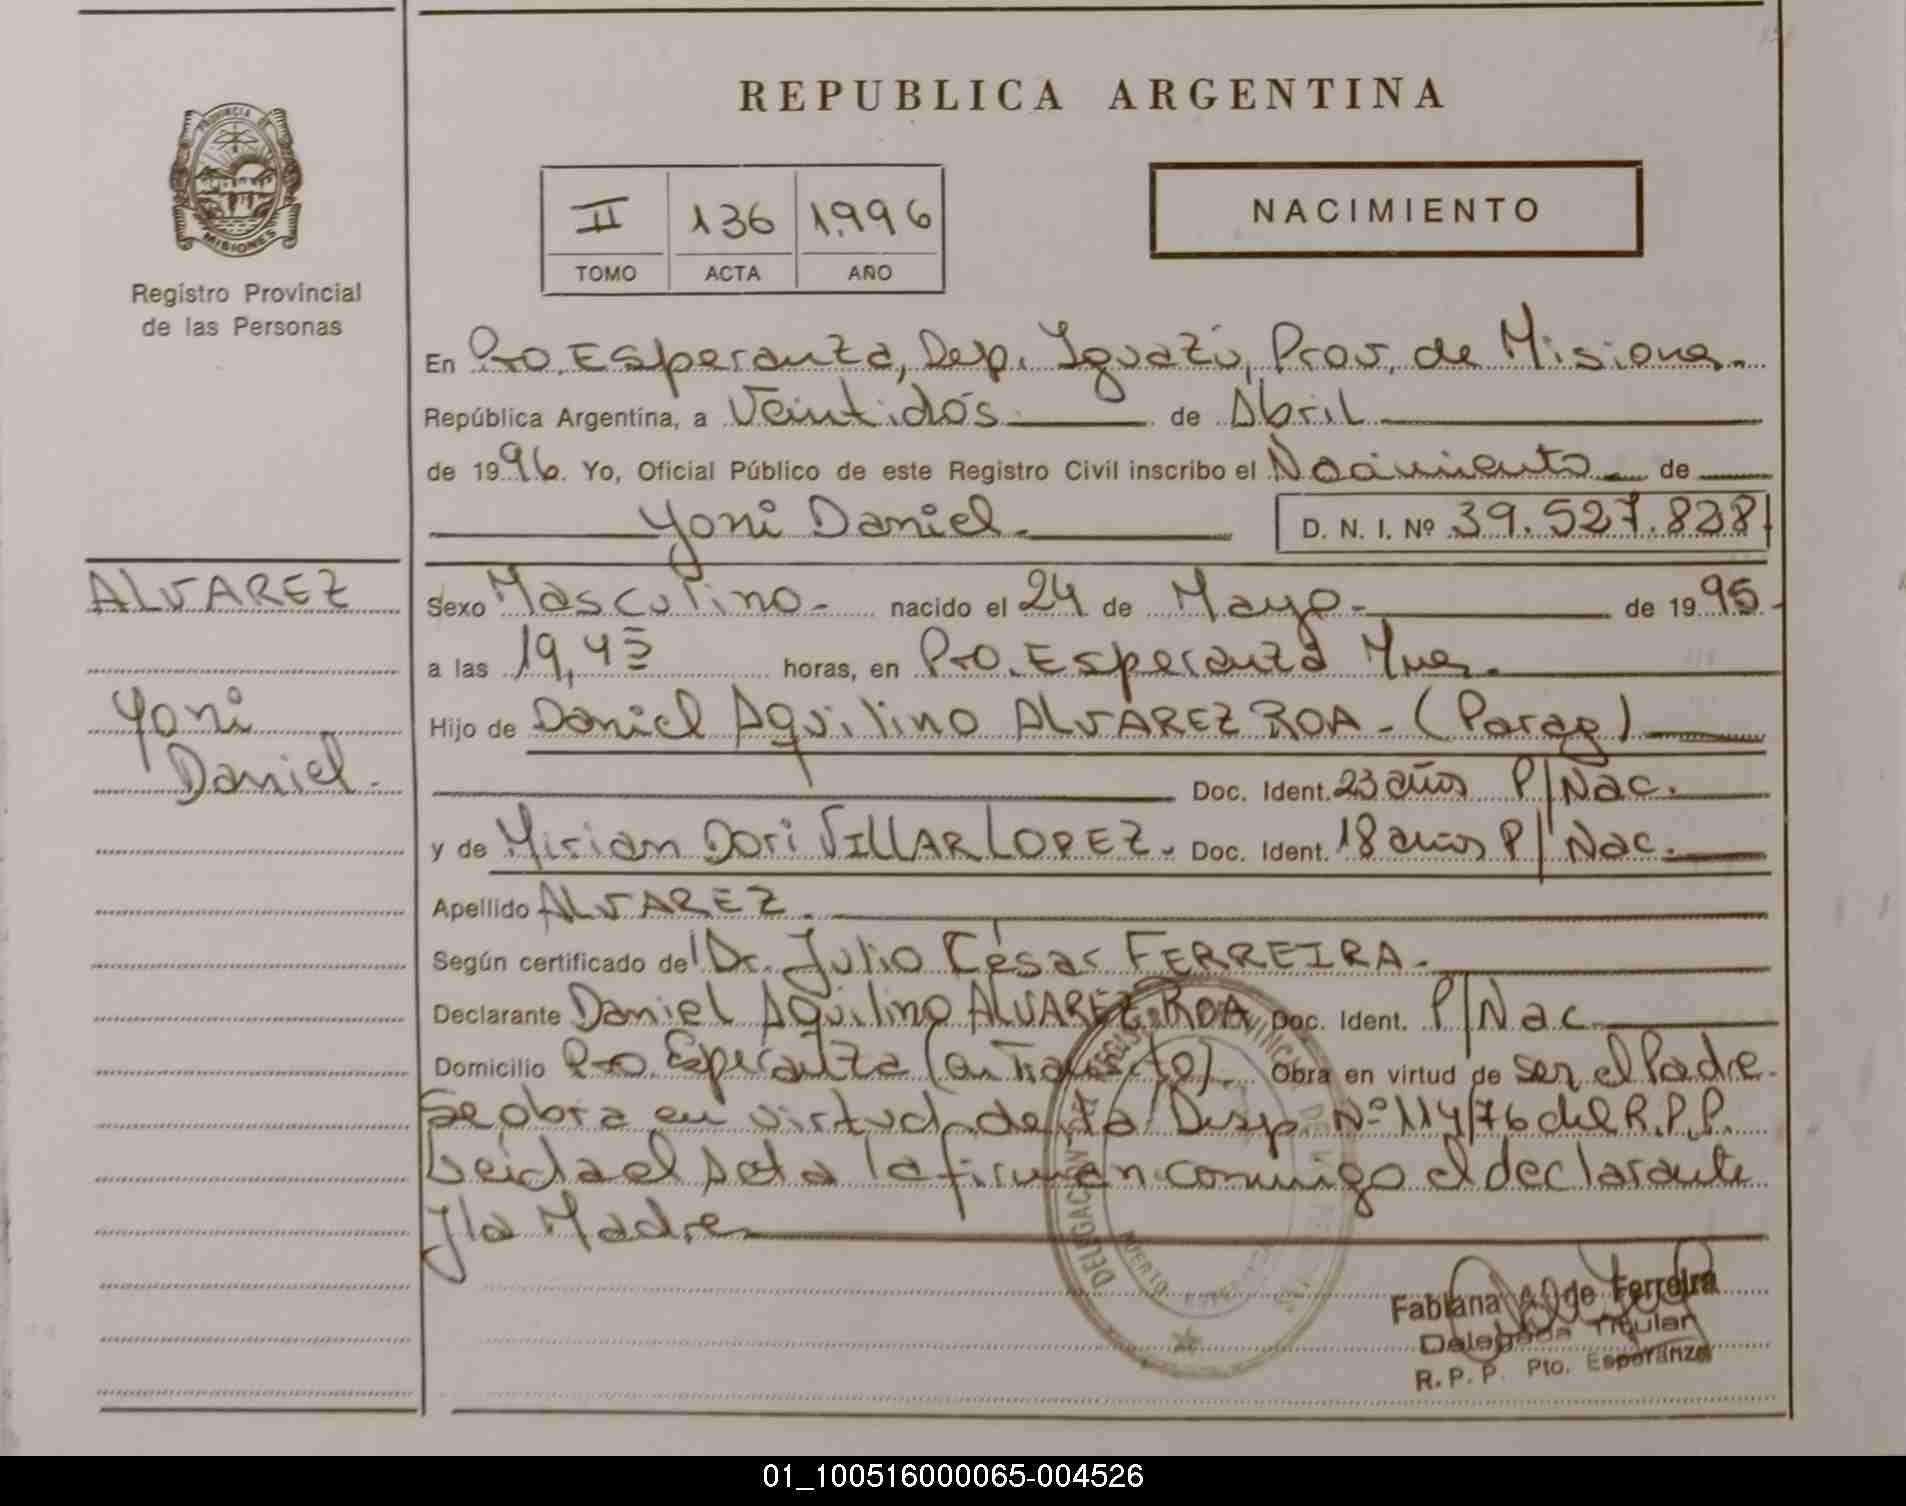 REPUBLICA ARGENTINA
PROVINCIA DE
MISIONES
Registro Provincial
de las Personas
II 136 1.996
TOMO ACTA AÑO
NACIMIENTO
En Pto. Esperanza, Dep. Iguazú, Prov. de Misiones.
República Argentina, a Veintidós de Abril
de 1996. Yo, Oficial Público de este Registro Civil inscribo el Nacimiento de
Yoni Daniel. D. N. I. Nº 39.527.828
ALVAREZ
Yoni
Daniel.
Sexo Masculino - nacido el 24 de Mayo - de 1995.
a las 19,45 horas, en Pto. Esperanza Mnes.
Hijo de Daniel Aquilino ALVAREZ ROA - (Parag)
Doc. Ident. 23 años P/Nac.
y de Mirian Dori VILLAR LOPEZ. Doc. Ident. 18 años P/Nac.
Apellido ALVAREZ.
Según certificado del Dr. Julio César FERREIRA.
Declarante Daniel Aquilino ALVAREZ ROA Doc. Ident. P/Nac
Domicilio Pto. Esperanza (en Transito). Obra en virtud de ser el Padre.
Se obra en virtud de la Disp. Nº 114/76 del R.P.P.
Leida el Acta la firman conmigo el declarante
y la Madre
Fabiana A. de Ferreira
Delegada Titular
R. P. P. Pto. Esperanza
01_100516000065-004526